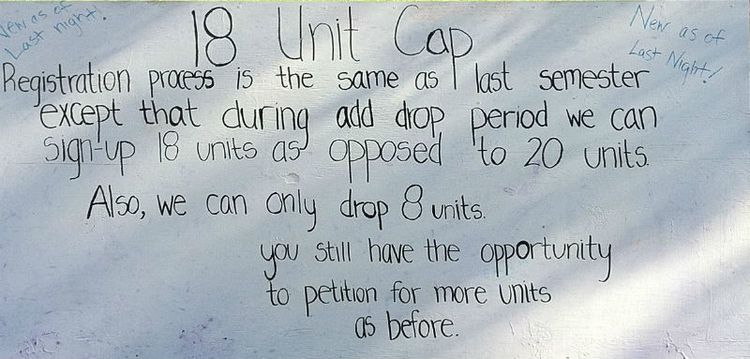 New as of
Last night!
New as of
Last Night!
18 Unit Cap
Registration process is the same as last semester
except that during add drop period we can
sign-up 18 units as opposed to 20 units.
Also, we can only drop 8 units.
you still have the opportunity
to petition for more units
as before.